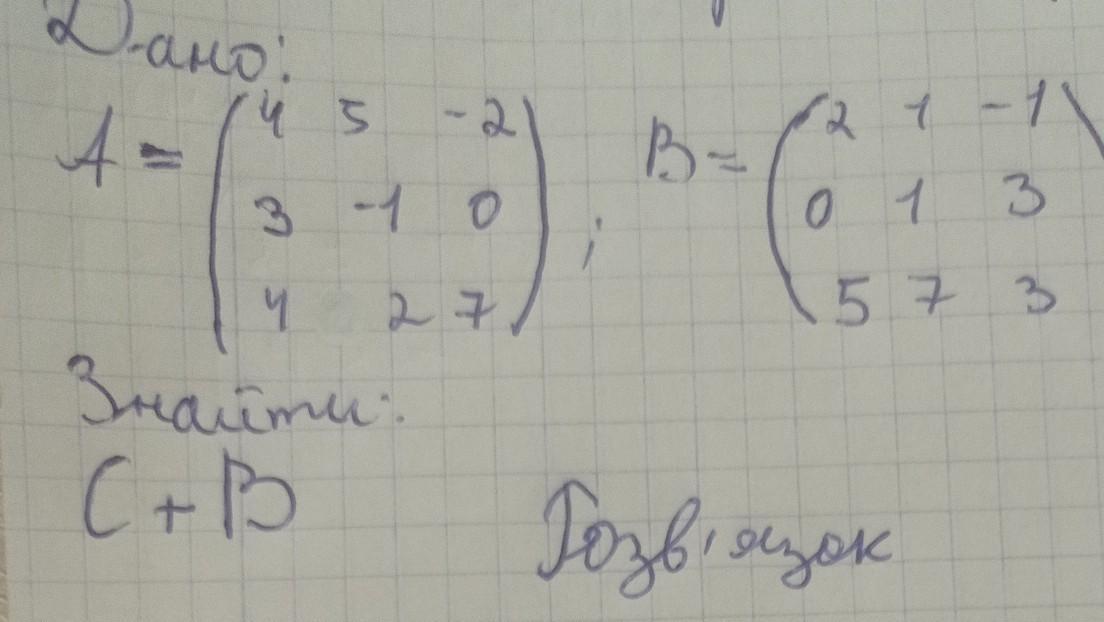 Дано:
A = (4 5 -2
3 -1 0
4 2 7) ; B = (2 1 -1
0 1 3
5 7 3
Знайти:
C + B
Розв'язок